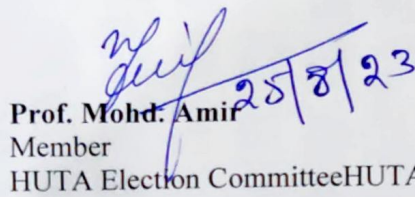 25/8/23
Prof. Mohd. Amir
Member
HUTA Election CommitteeHUTA